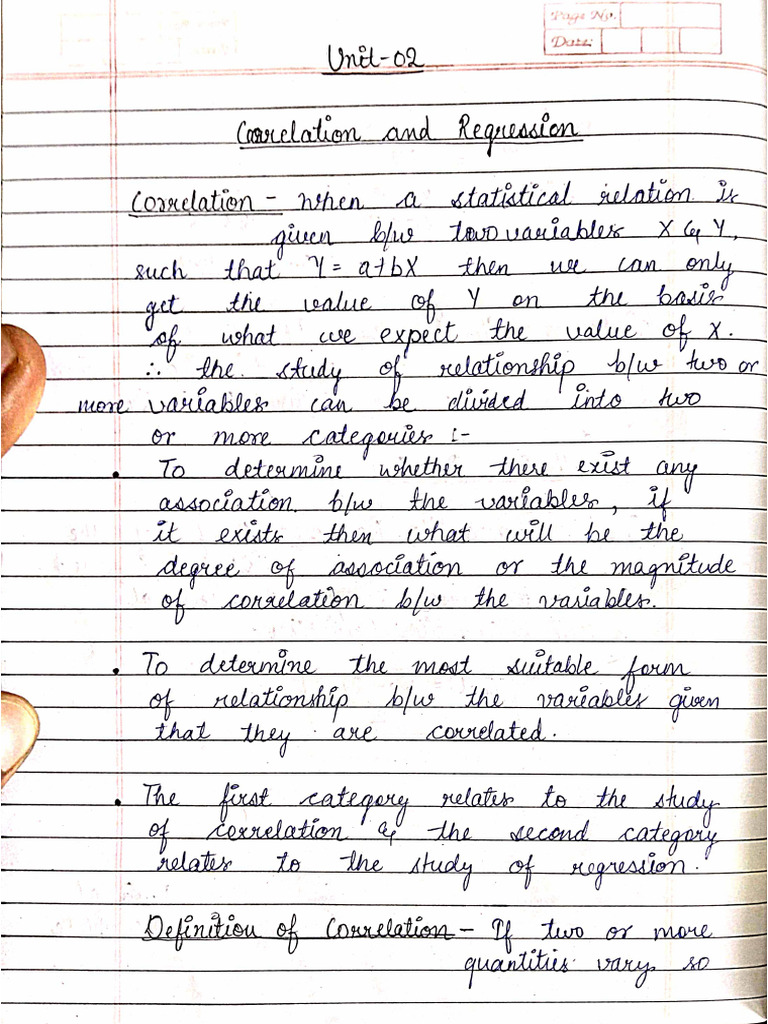 Page No.
Date:
Unit-02
Correlation and Regression
Correlation - When a statistical relation is
given b/w two variables X & Y,
such that Y = a+bX then we can only
get the value of Y on the basis
of what we expect the value of X.
∴ the study of relationship b/w two or
more variables can be divided into two
or more categories :-
• To determine whether there exist any
association b/w the variables, if
it exists then what will be the
degree of association or the magnitude
of correlation b/w the variables.
• To determine the most suitable form
of relationship b/w the variables given
that they are correlated.
• The first category relates to the study
of correlation & the second category
relates to the study of regression.
Definition of Correlation - If two or more
quantities vary so